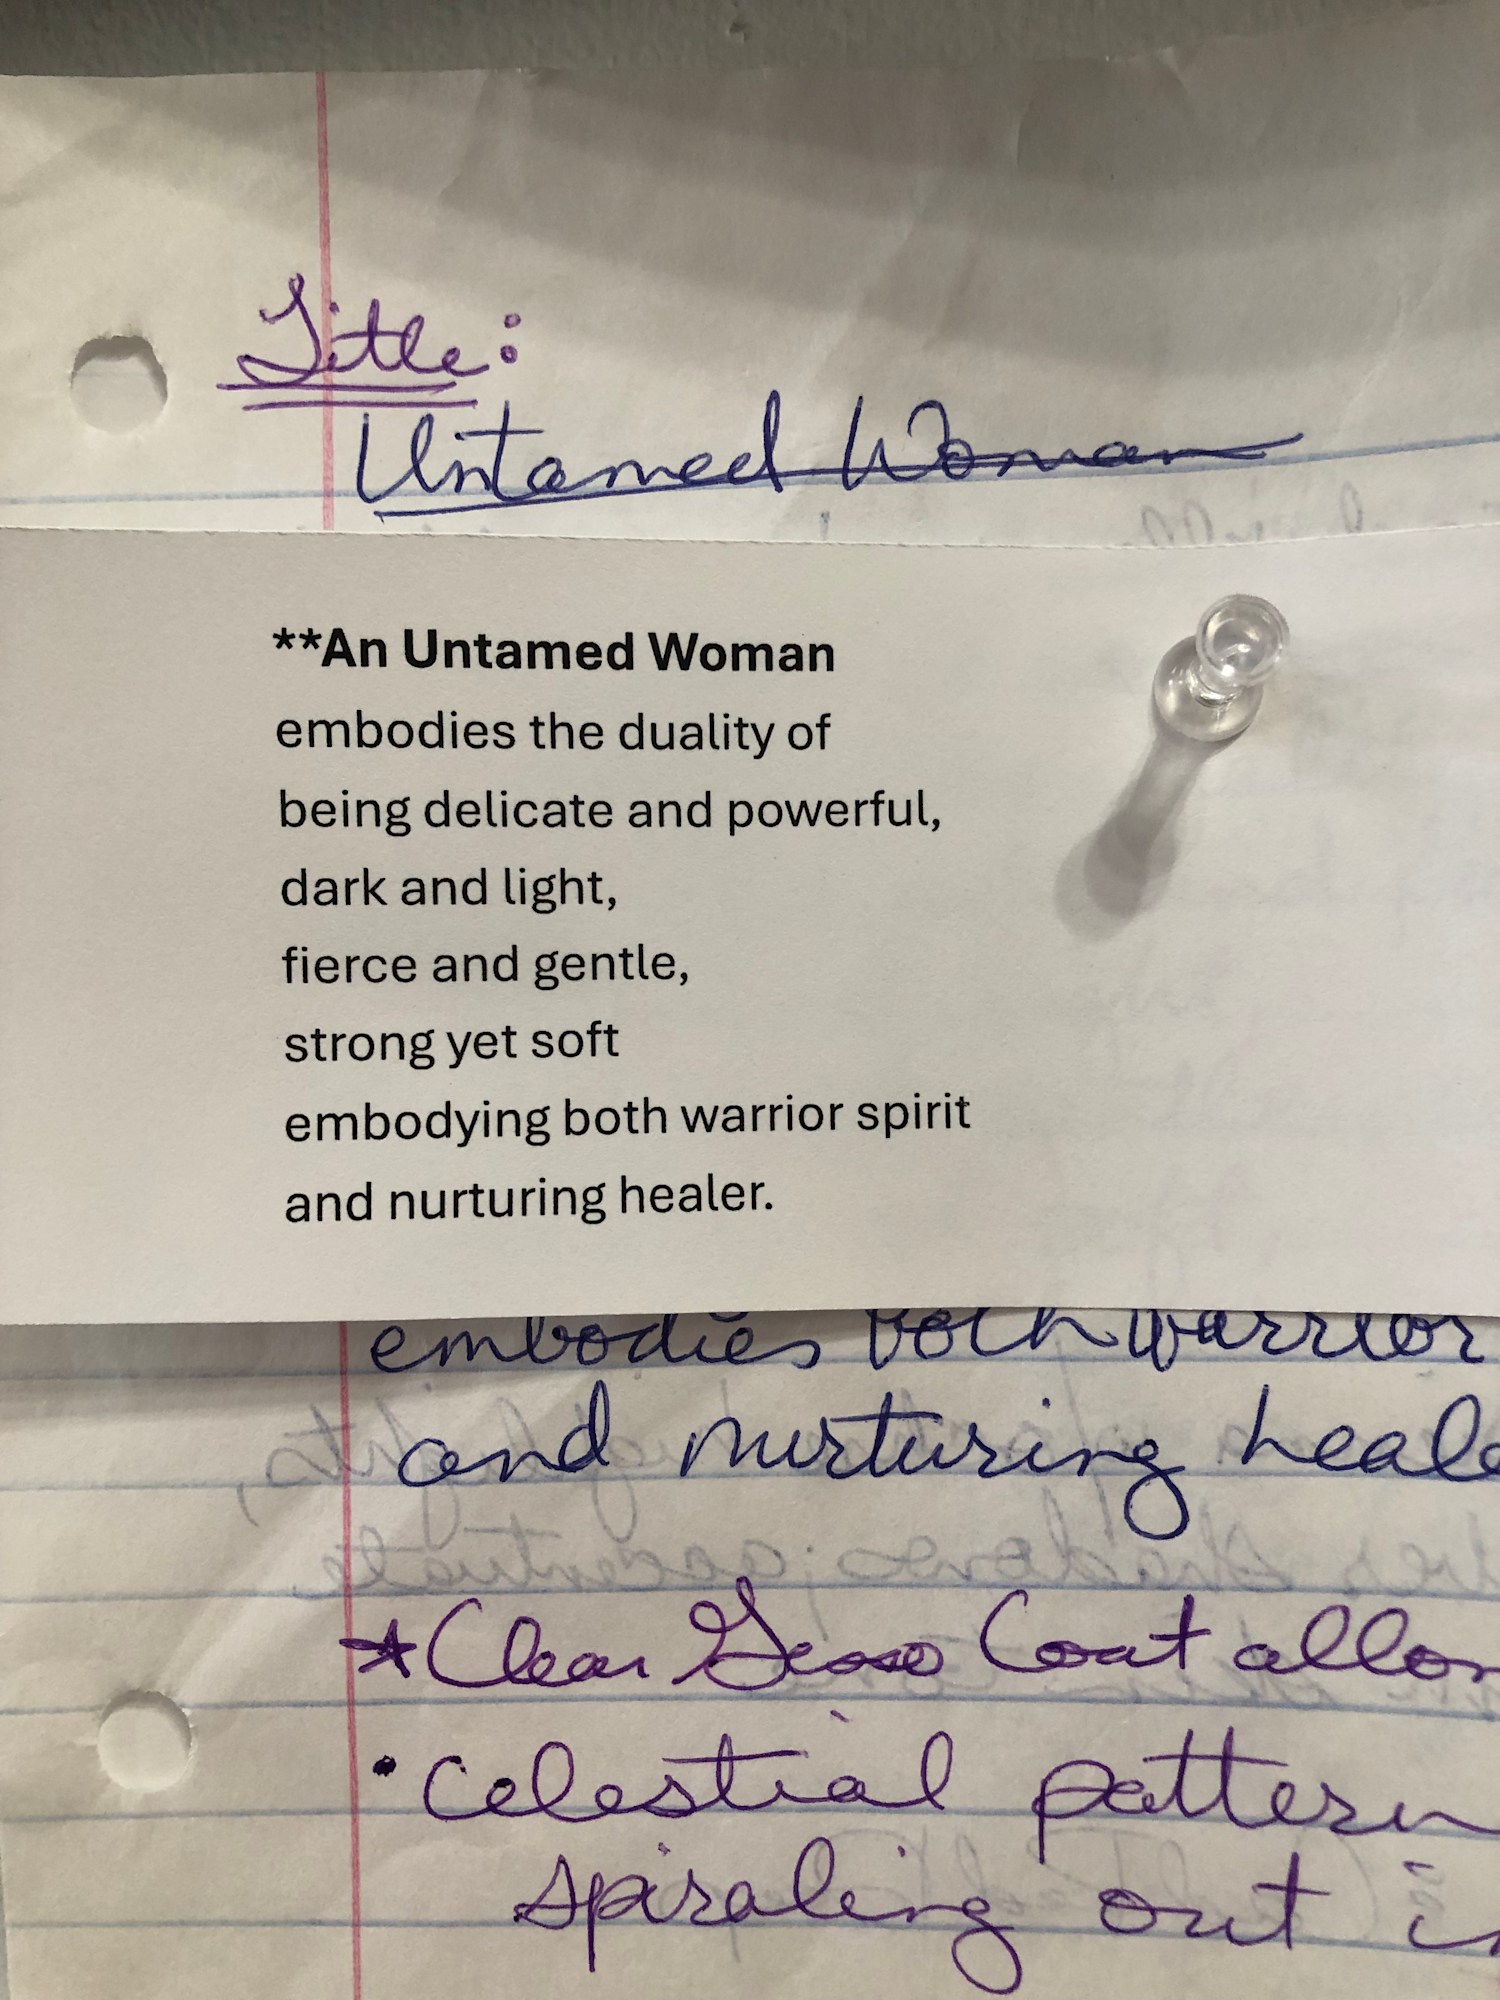 Title:
Untamed Woman
**An Untamed Woman
embodies the duality of
being delicate and powerful,
dark and light,
fierce and gentle,
strong yet soft
embodying both warrior spirit
and nurturing healer.
embodies both warrior
and nurturing heale
*Clear Gesso Coat allow
• Celestial pattern
spiraling out in